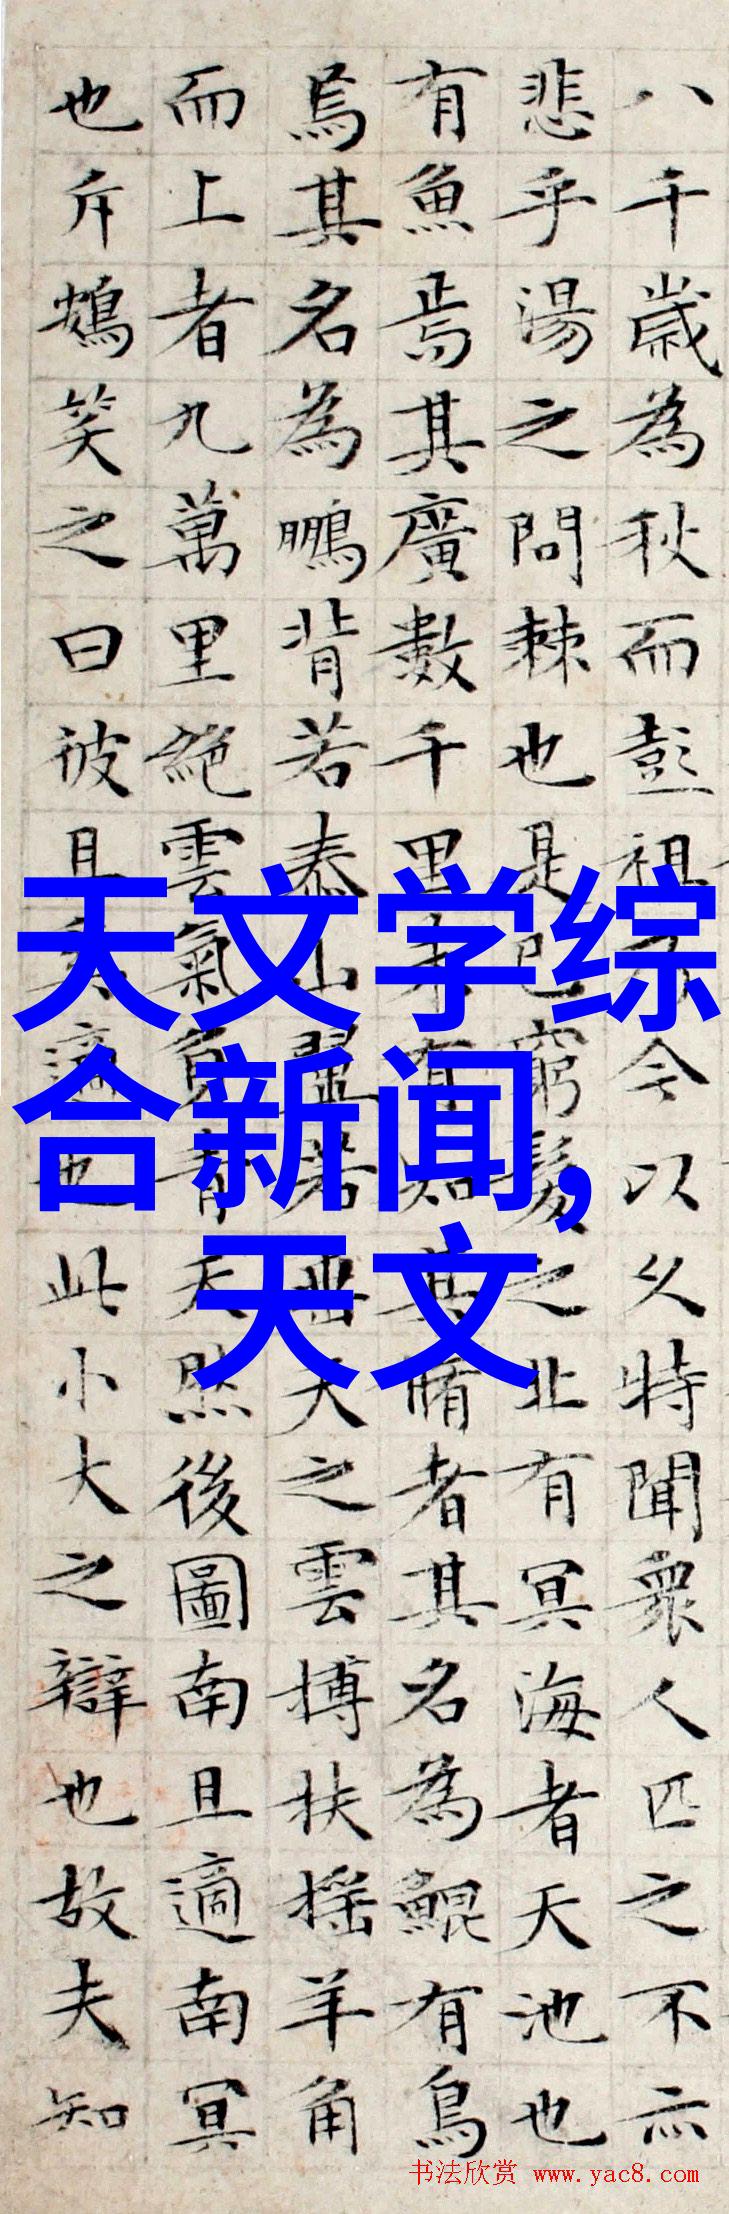 八千歲為秋而彭祖乃今以久特聞衆人匹之不亦
悲乎湯之問棘也是已窮髮之北有冥海者天池也
有魚焉其廣數千里未有知其脩者其名為鯤有鳥
焉其名為鵬背若泰山翼若垂天之雲搏扶搖羊角
而上者九萬里絕雲氣負青天然後圖南且適南冥
也斥鴳笑之曰彼且奚適也此小大之辯也故夫知
天文学综
合新闻,
天文
书法欣赏 www.yac8.com